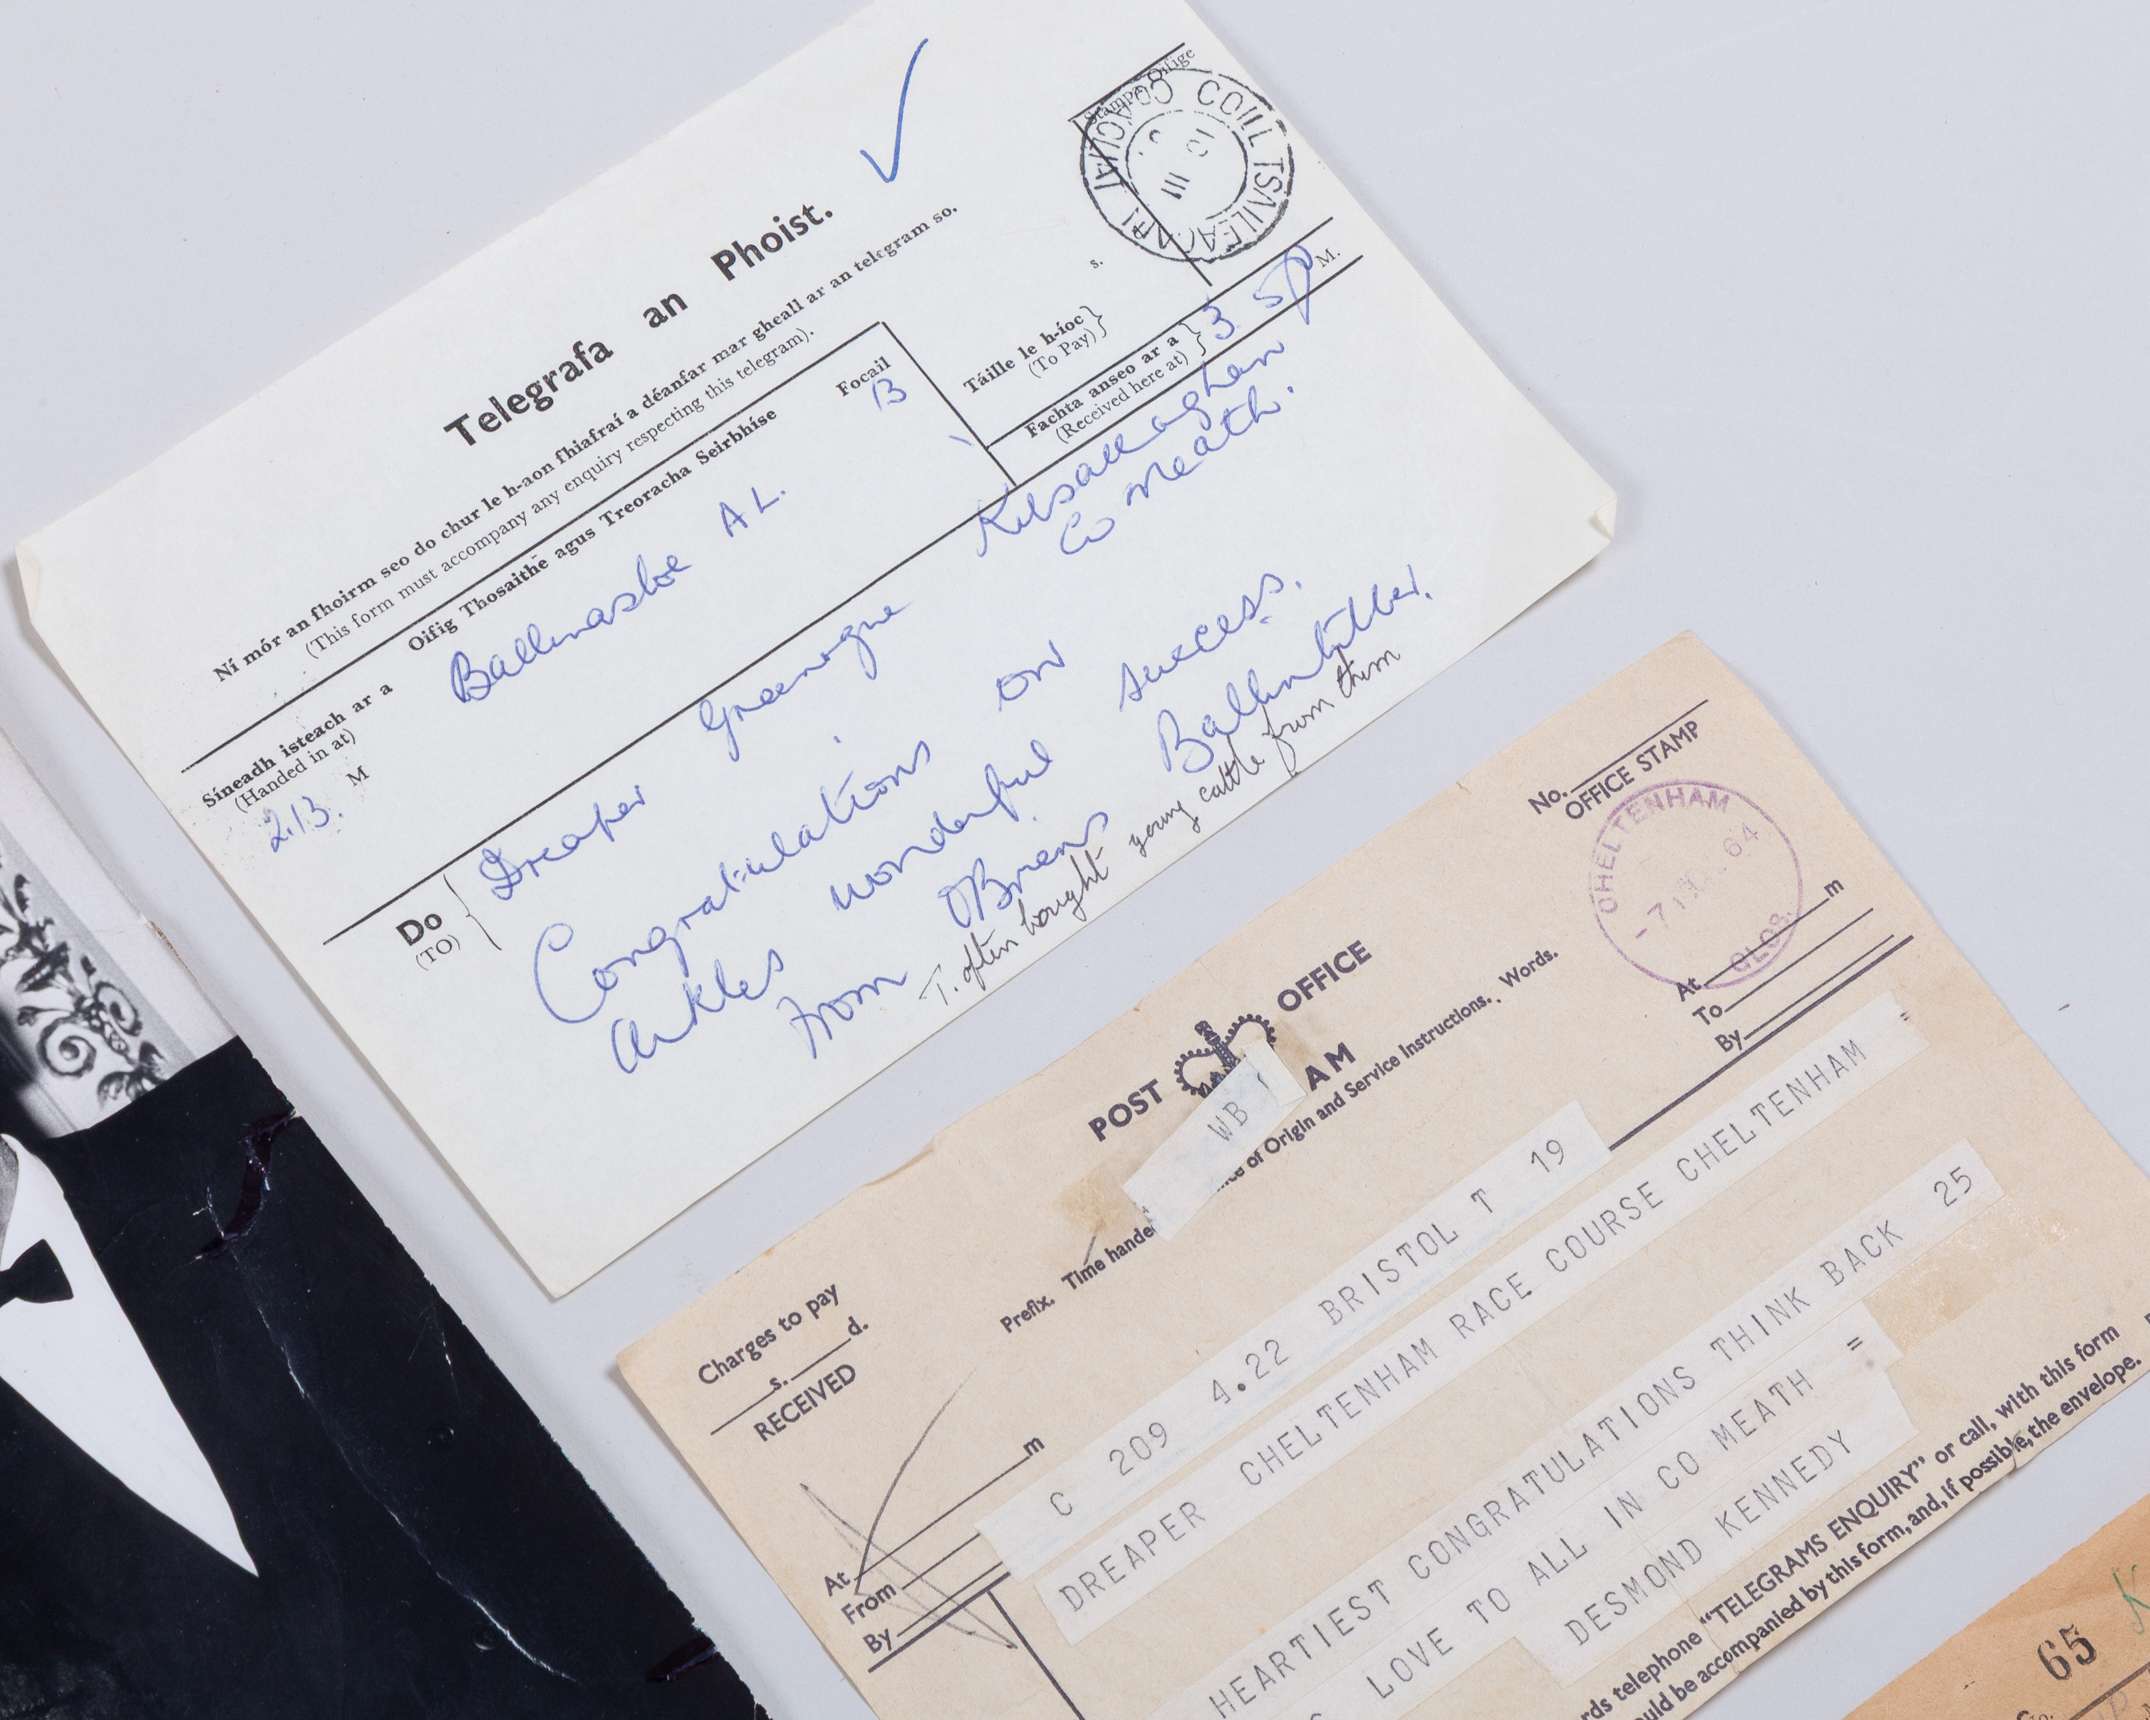 Telegrafa an Phoist.
Ní mór an fhoirm seo do chur le h-aon fhiafraí a déanfar mar gheall ar an telegram so.
(This form must accompany any enquiry respecting this telegram).
Oifig Thosaithe agus Treoracha Seirbhíse
Focail
13
Stampa Oifige
COILL TSAILEAC
CO. ÁCLIAT
10 III
s.
Táille le h-íoc
(To Pay)
Fachta anseo ar a
(Received here at)
3 50 M.
Síneadh isteach ar a
(Handed in at)
2.13. M
Ballinasloe AL.
Do
(TO)
Dreaper Greenogue Kilsallaghan
Co Meath.
Congratulations on
Arkles wonderful success.
From OBriens Ballintubber.
T. often bought young cattle from them
No.
OFFICE STAMP
CHELTENHAM
-7 64
GLOS.
POST OFFICE
AM
WB
Charges to pay
s. d.
RECEIVED
Prefix. Time hande of Origin and Service Instructions. Words.
m
At
From
By
m
At
To
By
C 209 4.22 BRISTOL T 19
DREAPER CHELTENHAM RACE COURSE CHELTENHAM =
HEARTIEST CONGRATULATIONS THINK BACK 25
LOVE TO ALL IN CO MEATH =
DESMOND KENNEDY
telephone "TELEGRAMS ENQUIRY" or call, with this form
be accompanied by this form, and, if possible, the envelope.
65